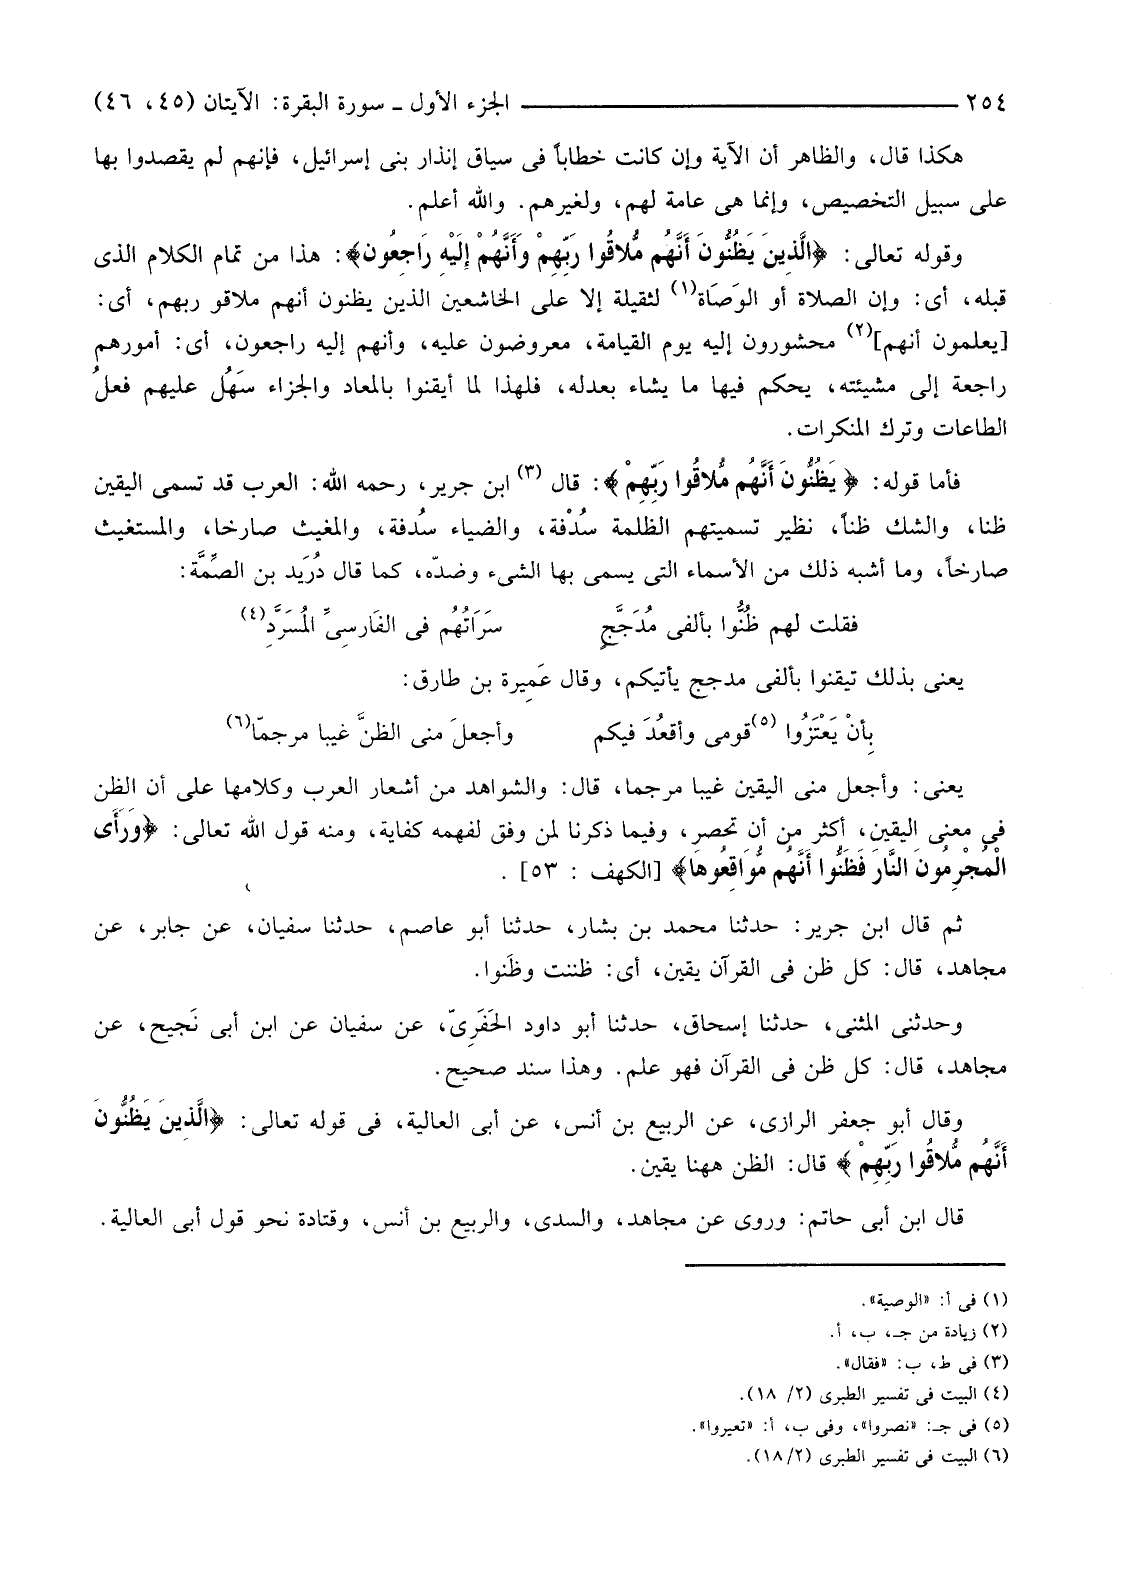 ٢٥٤ ـــــــــ الجزء الأول ـ سورة البقرة: الآيتان (٤٥، ٤٦)
هكذا قال، والظاهر أن الآية وإن كانت خطاباً فى سياق إنذار بنى إسرائيل، فإنهم لم يقصدوا بها
على سبيل التخصيص، وإنما هى عامة لهم، ولغيرهم. والله أعلم.
وقوله تعالى: ﴿الَّذِينَ يَظُنُّونَ أَنَّهُم مُّلاقُوا رَبِّهِمْ وَأَنَّهُمْ إِلَيْهِ رَاجِعُون﴾: هذا من تمام الكلام الذى
قبله، أى: وإن الصلاة أو الوَصَاة(١) لثقيلة إلا على الخاشعين الذين يظنون أنهم ملاقو ربهم، أى:
[يعلمون أنهم](٢) محشورون إليه يوم القيامة، معروضون عليه، وأنهم إليه راجعون، أى: أمورهم
راجعة إلى مشيئته، يحكم فيها ما يشاء بعدله، فلهذا لما أيقنوا بالمعاد والجزاء سَهُل عليهم فعلُ
الطاعات وترك المنكرات.
فأما قوله: ﴿يَظُنُّونَ أَنَّهُم مُّلاقُوا رَبِّهِمْ﴾: قال (٣) ابن جرير، رحمه الله: العرب قد تسمى اليقين
ظنا، والشك ظناً، نظير تسميتهم الظلمة سُدْفة، والضياء سُدفة، والمغيث صارخا، والمستغيث
صارخاً، وما أشبه ذلك من الأسماء التى يسمى بها الشىء وضدّه، كما قال دُرَيد بن الصِّمَّة:
فقلت لهم ظُنُّوا بألفى مُدَجَّجٍ سَرَاتُهُم فى الفَارسِىِّ المُسَرَّدِ(٤)
يعنى بذلك تيقنوا بألفى مدجج يأتيكم، وقال عَمِيرة بن طارق:
بِأنْ يَعْتَزُوا (٥)قومى وأقعُدَ فيكم وأجعلَ منى الظنَّ غيبا مرجمّا(٦)
يعنى: وأجعل منى اليقين غيبا مرجما، قال: والشواهد من أشعار العرب وكلامها على أن الظن
فى معنى اليقين، أكثر من أن تحصر، وفيما ذكرنا لمن وفق لفهمه كفاية، ومنه قول الله تعالى: ﴿وَرَأَى
الْمُجْرِمُونَ النَّارَ فَظَنُّوا أَنَّهُم مُّوَاقِعُوهَا﴾ [الكهف : ٥٣] .
ثم قال ابن جرير: حدثنا محمد بن بشار، حدثنا أبو عاصم، حدثنا سفيان، عن جابر، عن
مجاهد، قال: كل ظن فى القرآن يقين، أى: ظننت وظَنوا.
وحدثنى المثنى، حدثنا إسحاق، حدثنا أبو داود الحَفَرِىّ، عن سفيان عن ابن أبى نَجيح، عن
مجاهد، قال: كل ظن فى القرآن فهو علم. وهذا سند صحيح.
وقال أبو جعفر الرازى، عن الربيع بن أنس، عن أبى العالية، فى قوله تعالى: ﴿الَّذِينَ يَظُنُّونَ
أَنَّهُم مُّلاقُوا رَبِّهِمْ﴾ قال: الظن ههنا يقين.
قال ابن أبى حاتم: وروى عن مجاهد، والسدى، والربيع بن أنس، وقتادة نحو قول أبى العالية.
(١) فى أ: «الوصية».
(٢) زيادة من جـ، ب، أ.
(٣) فى ط، ب: «فقال».
(٤) البيت فى تفسير الطبرى (٢/ ١٨).
(٥) فى جـ: «نصروا»، وفى ب، أ: «تعيروا».
(٦) البيت فى تفسير الطبرى (١٨/٢).